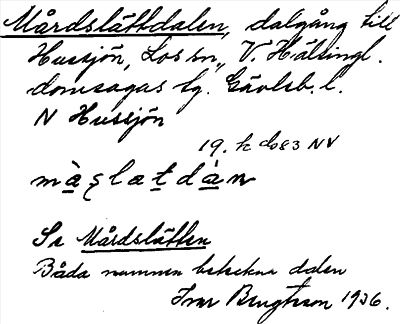 Mårdslättdalen, dalgång till
Hussjön, Los sn, V. Hälsingl.
domsagas tg. Gävleb. l.
N Hussjön
19. k do83 NV
màʂlatdàn
Se Mårdslätten
Båda namnen beteckna dalen
Ivar Bengtsson 1936.